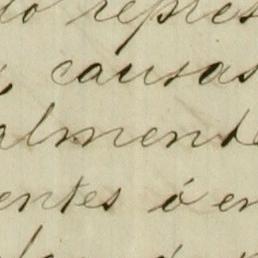 do repres
causas
almente
entes ó en